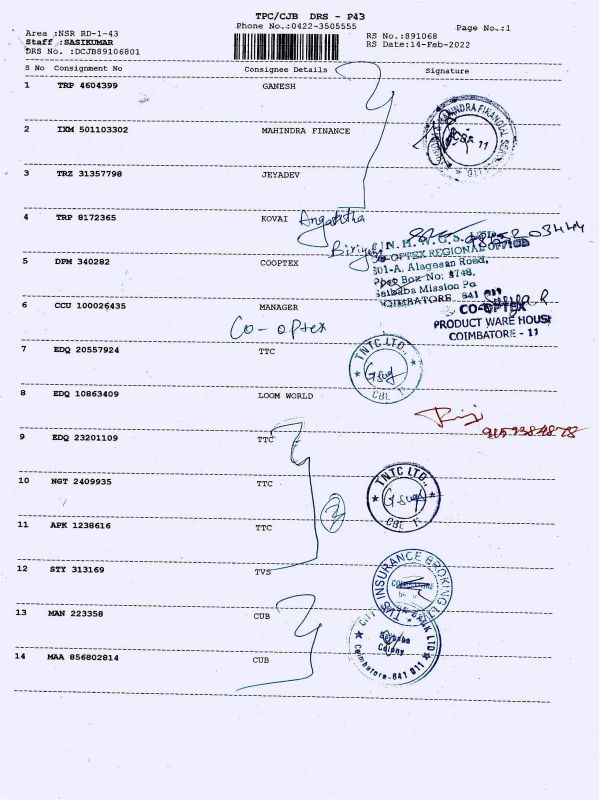 TPC/CJB DRS - P43
Phone No.:0422-3505555
Page No.:1
Area :NSR RD-1-43
Staff :SASIKUMAR
DRS No. :DCJB89106801
RS No.:891068
RS Date:14-Feb-2022
S No Consignment No Consignee Details Signature
1 TRP 4604399 GANESH
2 IXM 501103302 MAHINDRA FINANCE
3 TRZ 31357798 JEYADEV
4 TRP 8172365 KOVAI
5 DPM 340282 COOPTEX
CO-OPTEX REGIONAL OFFICE
301-A, Alagesan Road,
Box No: 8748,
Saibaba Mission Po
COIMBATORE 641 011
6 CCU 100026435 MANAGER
Co-optex
CO-OPTEX
PRODUCT WARE HOUSE
COIMBATORE - 11
7 EDQ 20557924 TTC
TNTC LTD.,
8 EDQ 10863409 LOOM WORLD
9 EDQ 23201109 TTC
10 NGT 2409935 TTC
TNTC LTD.,
11 APK 1238616 TTC
12 STY 313169 TVS
TVS INSURANCE BROKING
13 MAN 223358 CUB
14 MAA 856802814 CUB
Saibaba
Colony
Coimbatore-641 011